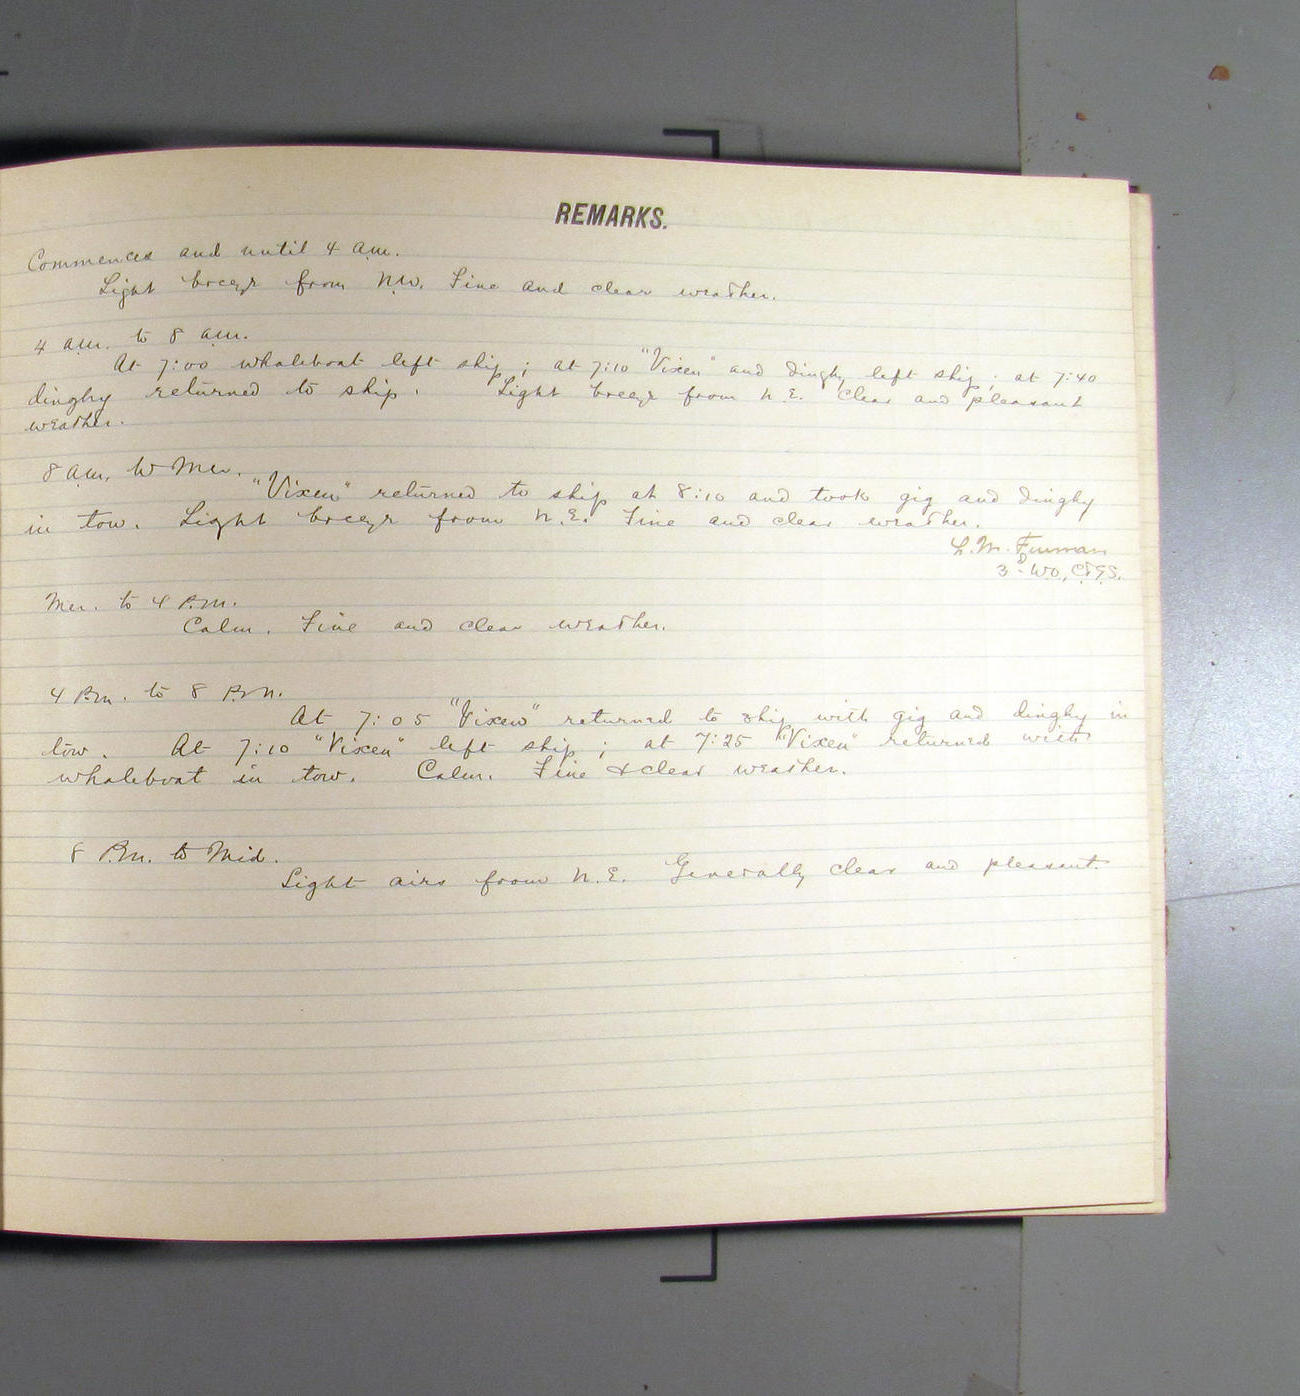 REMARKS.
Commences and until 4 a.m.
Light breeze from NW. Fine and clear weather.
4 a.m. to 8 a.m.
At 7:00 whaleboat left ship; at 7:10 "Vixen" and dinghy left ship; at 7:40
dinghy returned to ship. Light breeze from N.E. Clear and pleasant
weather.
8 a.m. to Mer.
"Vixen" returned to ship at 8:10 and took gig and dinghy
in tow. Light breeze from N.E. Fine and clear weather.
L. M. Furman
3d W.O., C.&G.S.
Mer. to 4 P.M.
Calm. Fine and clear weather.
4 P.M. to 8 P.M.
At 7:05 "Vixen" returned to ship with gig and dinghy in
tow. At 7:10 "Vixen" left ship; at 7:25 "Vixen" returned with
whaleboat in tow. Calm. Fine & clear weather.
8 P.M. to Mid.
Light airs from N.E. Generally clear and pleasant.